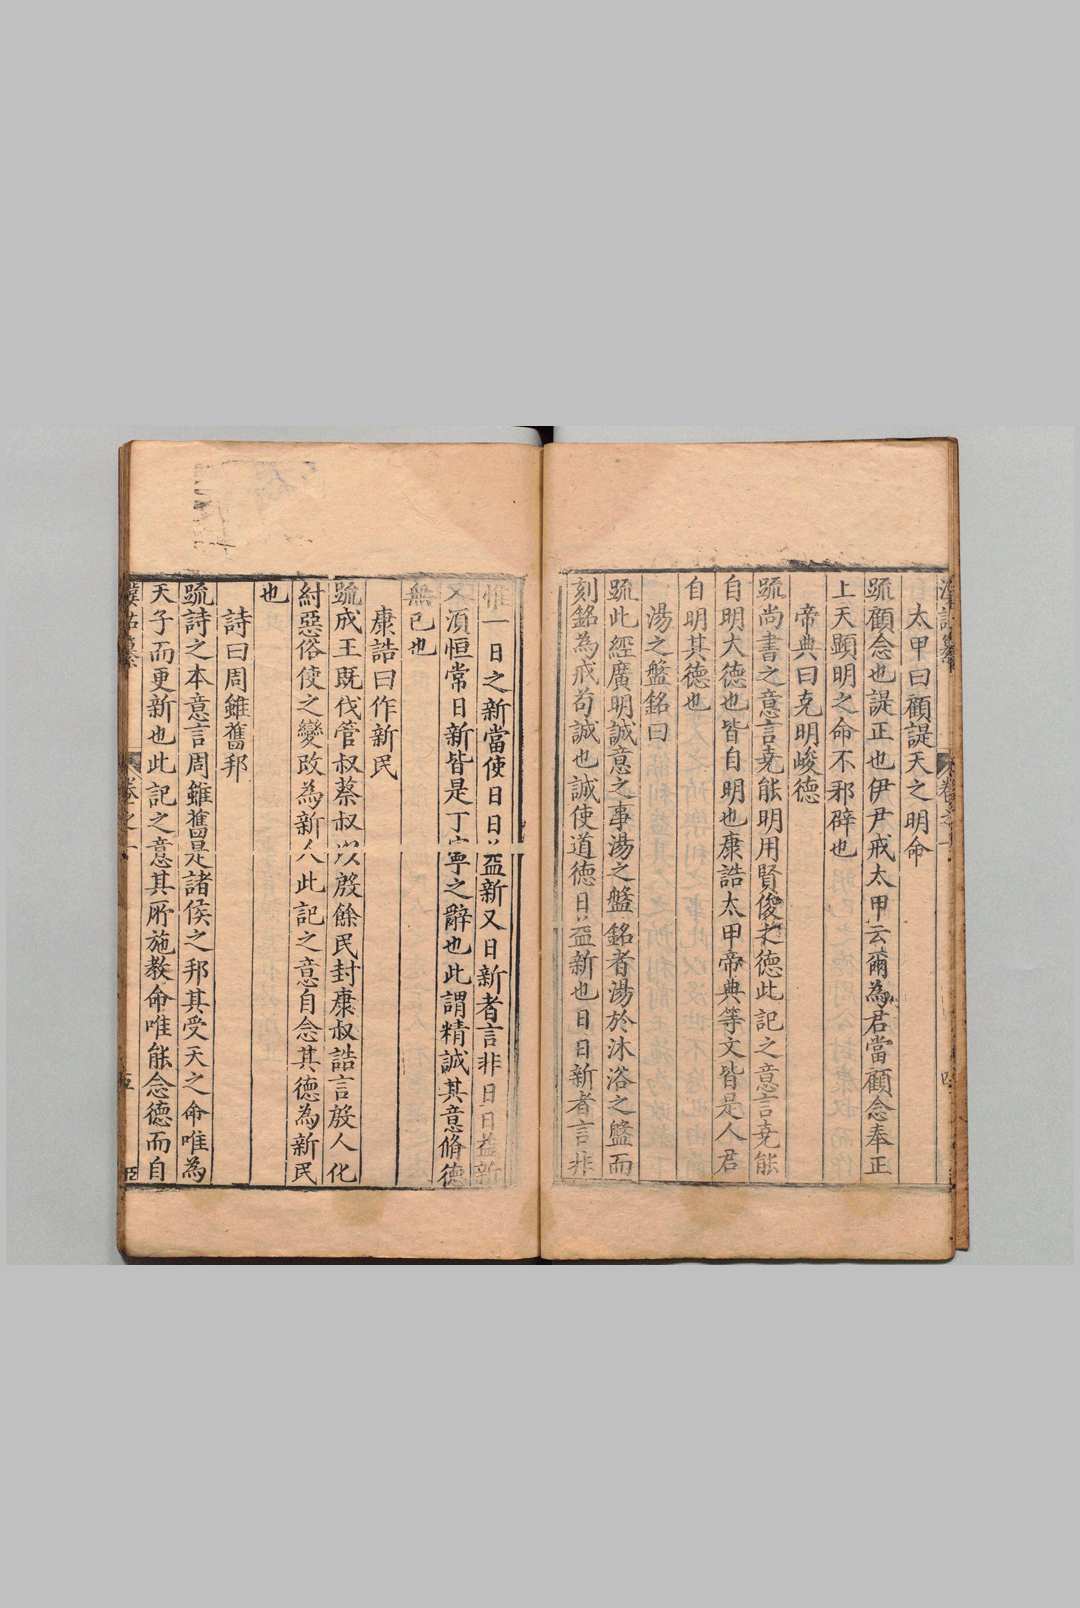 漢詁纂
卷之一
太甲曰顧諟天之明命
疏顧念也諟正也伊尹戒太甲云爾為君當顧念奉正
上天顯明之命不邪辟也
帝典曰克明峻德
疏尚書之意言堯能明用賢俊之德此記之意言堯能
自明大德也皆自明也康誥太甲帝典等文皆是人君
自明其德也
湯之盤銘曰
疏此經廣明誠意之事湯之盤銘者湯於沐浴之盤而
刻銘為戒苟誠也誠使道德日益新也日日新者言非
惟一日之新當使日日益新又日新者言非日日益新
又湏恒常日新皆是丁寧之辭也此謂精誠其意脩德
無已也
康誥曰作新民
疏成王既伐管叔蔡叔以殷餘民封康叔誥言殷人化
紂惡俗使之變改為新人此記之意自念其德為新民
也
詩曰周雖舊邦
疏詩之本意言周雖舊是諸侯之邦其受天之命唯為
天子而更新也此記之意其所施教命唯能念德而自
漢詁纂
卷之一
五